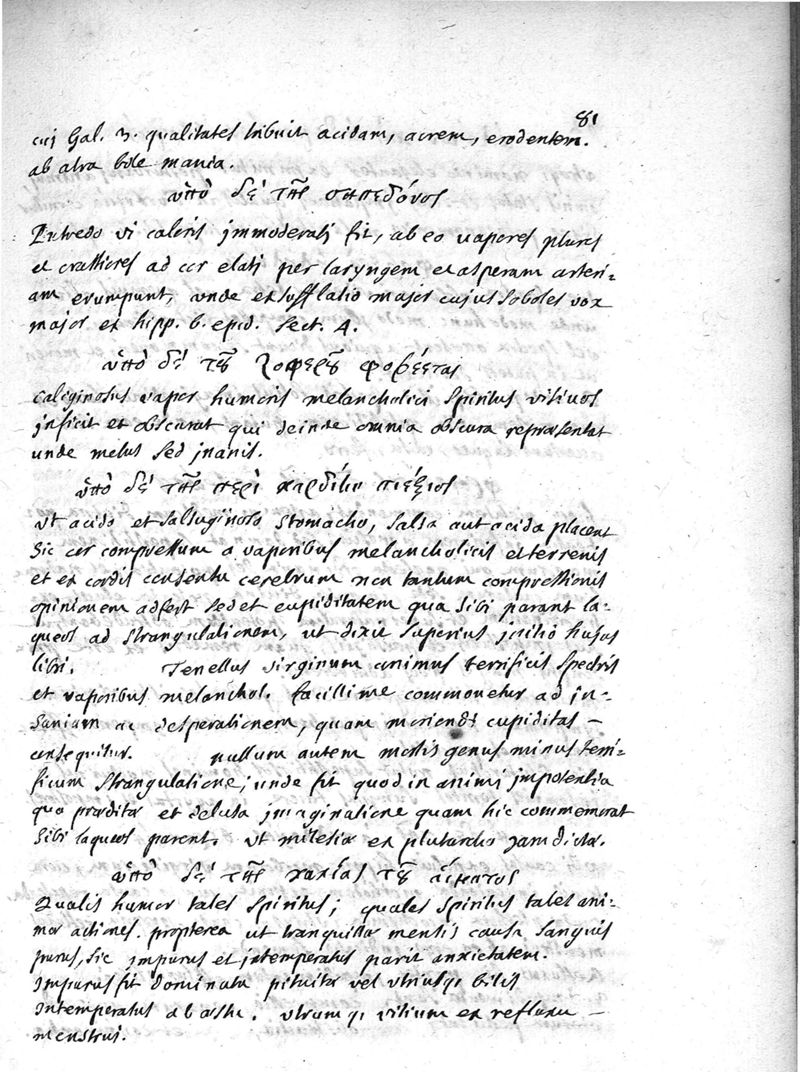 81
cuj Gal. 3. qualitates tribuit acidam, acrem, erodentem.
ab atra bile mania.
ὑπὸ δὲ τῆς σηπεδόνος
Putredo vi caloris jmmoderatj fit, ab eo vapores plures
et crassiores ad cor elati per laryngem et asperam arteri-
am erumpunt, unde et sufflatio major cujus soboles vox
major ex hipp. 6. epid. sect. 4.
ὑπὸ δὲ τοῦ ζοφεροῦ φοβέεται
caliginosus vapor humoris melancholici spiritus visivos
jnficit et obscurat qui deinde omnia obscura repraesentat
unde metus sed jnanis.
ὑπὸ δὲ τῆς περὶ καρδίην πιέξιος
ut acido et salsuginoso stomacho, salsa aut acida placent
sic cor compressum a vaporibus melancholicis et terrenis
et ex cordis consensu cerebrum non tantum compressionis
opinionem adfert sed et cupiditatem qua sibi parant la-
queos ad strangulationem, ut dixit superius jnitio hujus
libri. Tenellus virginum animus terrificis spectris
et vaporibus melanchol. facillime commouetur ad in-
saniam ac desperationem, quam moriendi cupiditas
consequitur. nullum autem mortis genus minus terri-
ficum strangulatione; unde fit quod in animi jmpotentia
qua praeditae et delusa jmaginatione quam hic commemorat
sibi laqueos parent. ut milesiae ex plutarcho jam dictae.
ὑπὸ δὲ τῆς κακίας τοῦ αἵματος
Qualis humor tales spiritus; quales spiritus tales ani-
mae actiones. propterea ut tranquillae mentis causa sanguis
purus, sic impurus et jntemperatus parit anxietatem.
Impurus fit dominatu pituitae vel utriusq; bilis
Intemperatus ab aestu. utrumq; vitium ex refluxu
menstrui.